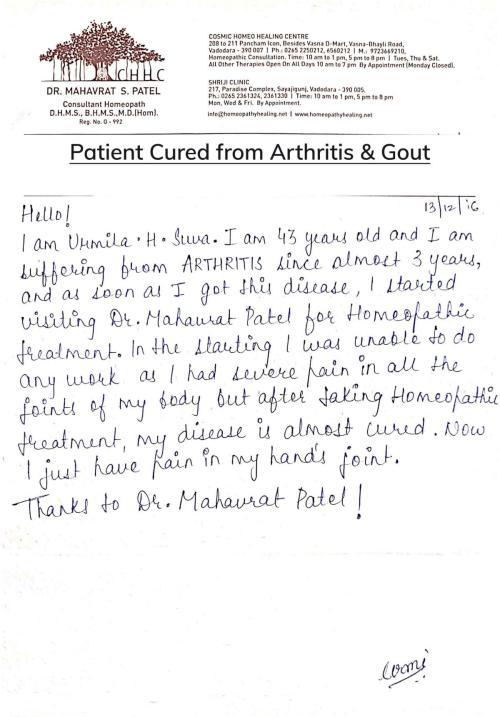 CHHC
DR. MAHAVRAT S. PATEL
Consultant Homeopath
D.H.M.S., B.H.M.S.,M.D.(Hom).
Reg. No. G - 992
COSMIC HOMEO HEALING CENTRE
208 to 211 Pancham Icon, Besides Vasna D-Mart, Vasna-Bhayli Road,
Vadodara - 390 007 | Ph.: 0265 2250212, 6560212 | M.: 9723669210,
Homeopathic Consultation. Time: 10 am to 1 pm, 5 pm to 8 pm | Tues, Thu & Sat.
All Other Therapies Open On All Days 10 am to 7 pm By Appointment (Monday Closed).
SHRIJI CLINIC
217, Paradise Complex, Sayajigunj, Vadodara - 390 005.
Ph.: 0265 2361324, 2361330 | Time: 10 am to 1 pm, 5 pm to 8 pm
Mon, Wed & Fri. By Appointment.
info@homeopathyhealing.net | www.homeopathyhealing.net
Patient Cured from Arthritis & Gout
13/12/16
Hello!
I am Urmila . H . Suva . I am 43 years old and I am
suffering from ARTHRITIS since almost 3 years,
and as soon as I got this disease, I started
visiting Dr. Mahavrat Patel for Homeopathic
treatment. In the starting I was unable to do
any work as I had severe pain in all the
joints of my body but after taking Homeopathic
treatment, my disease is almost cured. Now
I just have pain in my hand's joint.
Thanks to Dr. Mahavrat Patel!